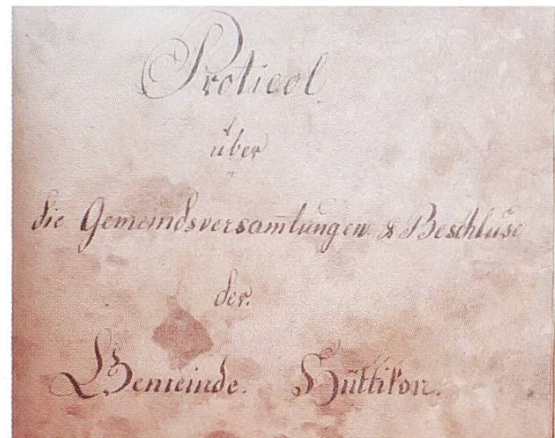 Proticol
über
die Gemeindsversamlungen & Beschlüse
der.
Gemeinde. Hüttikon.